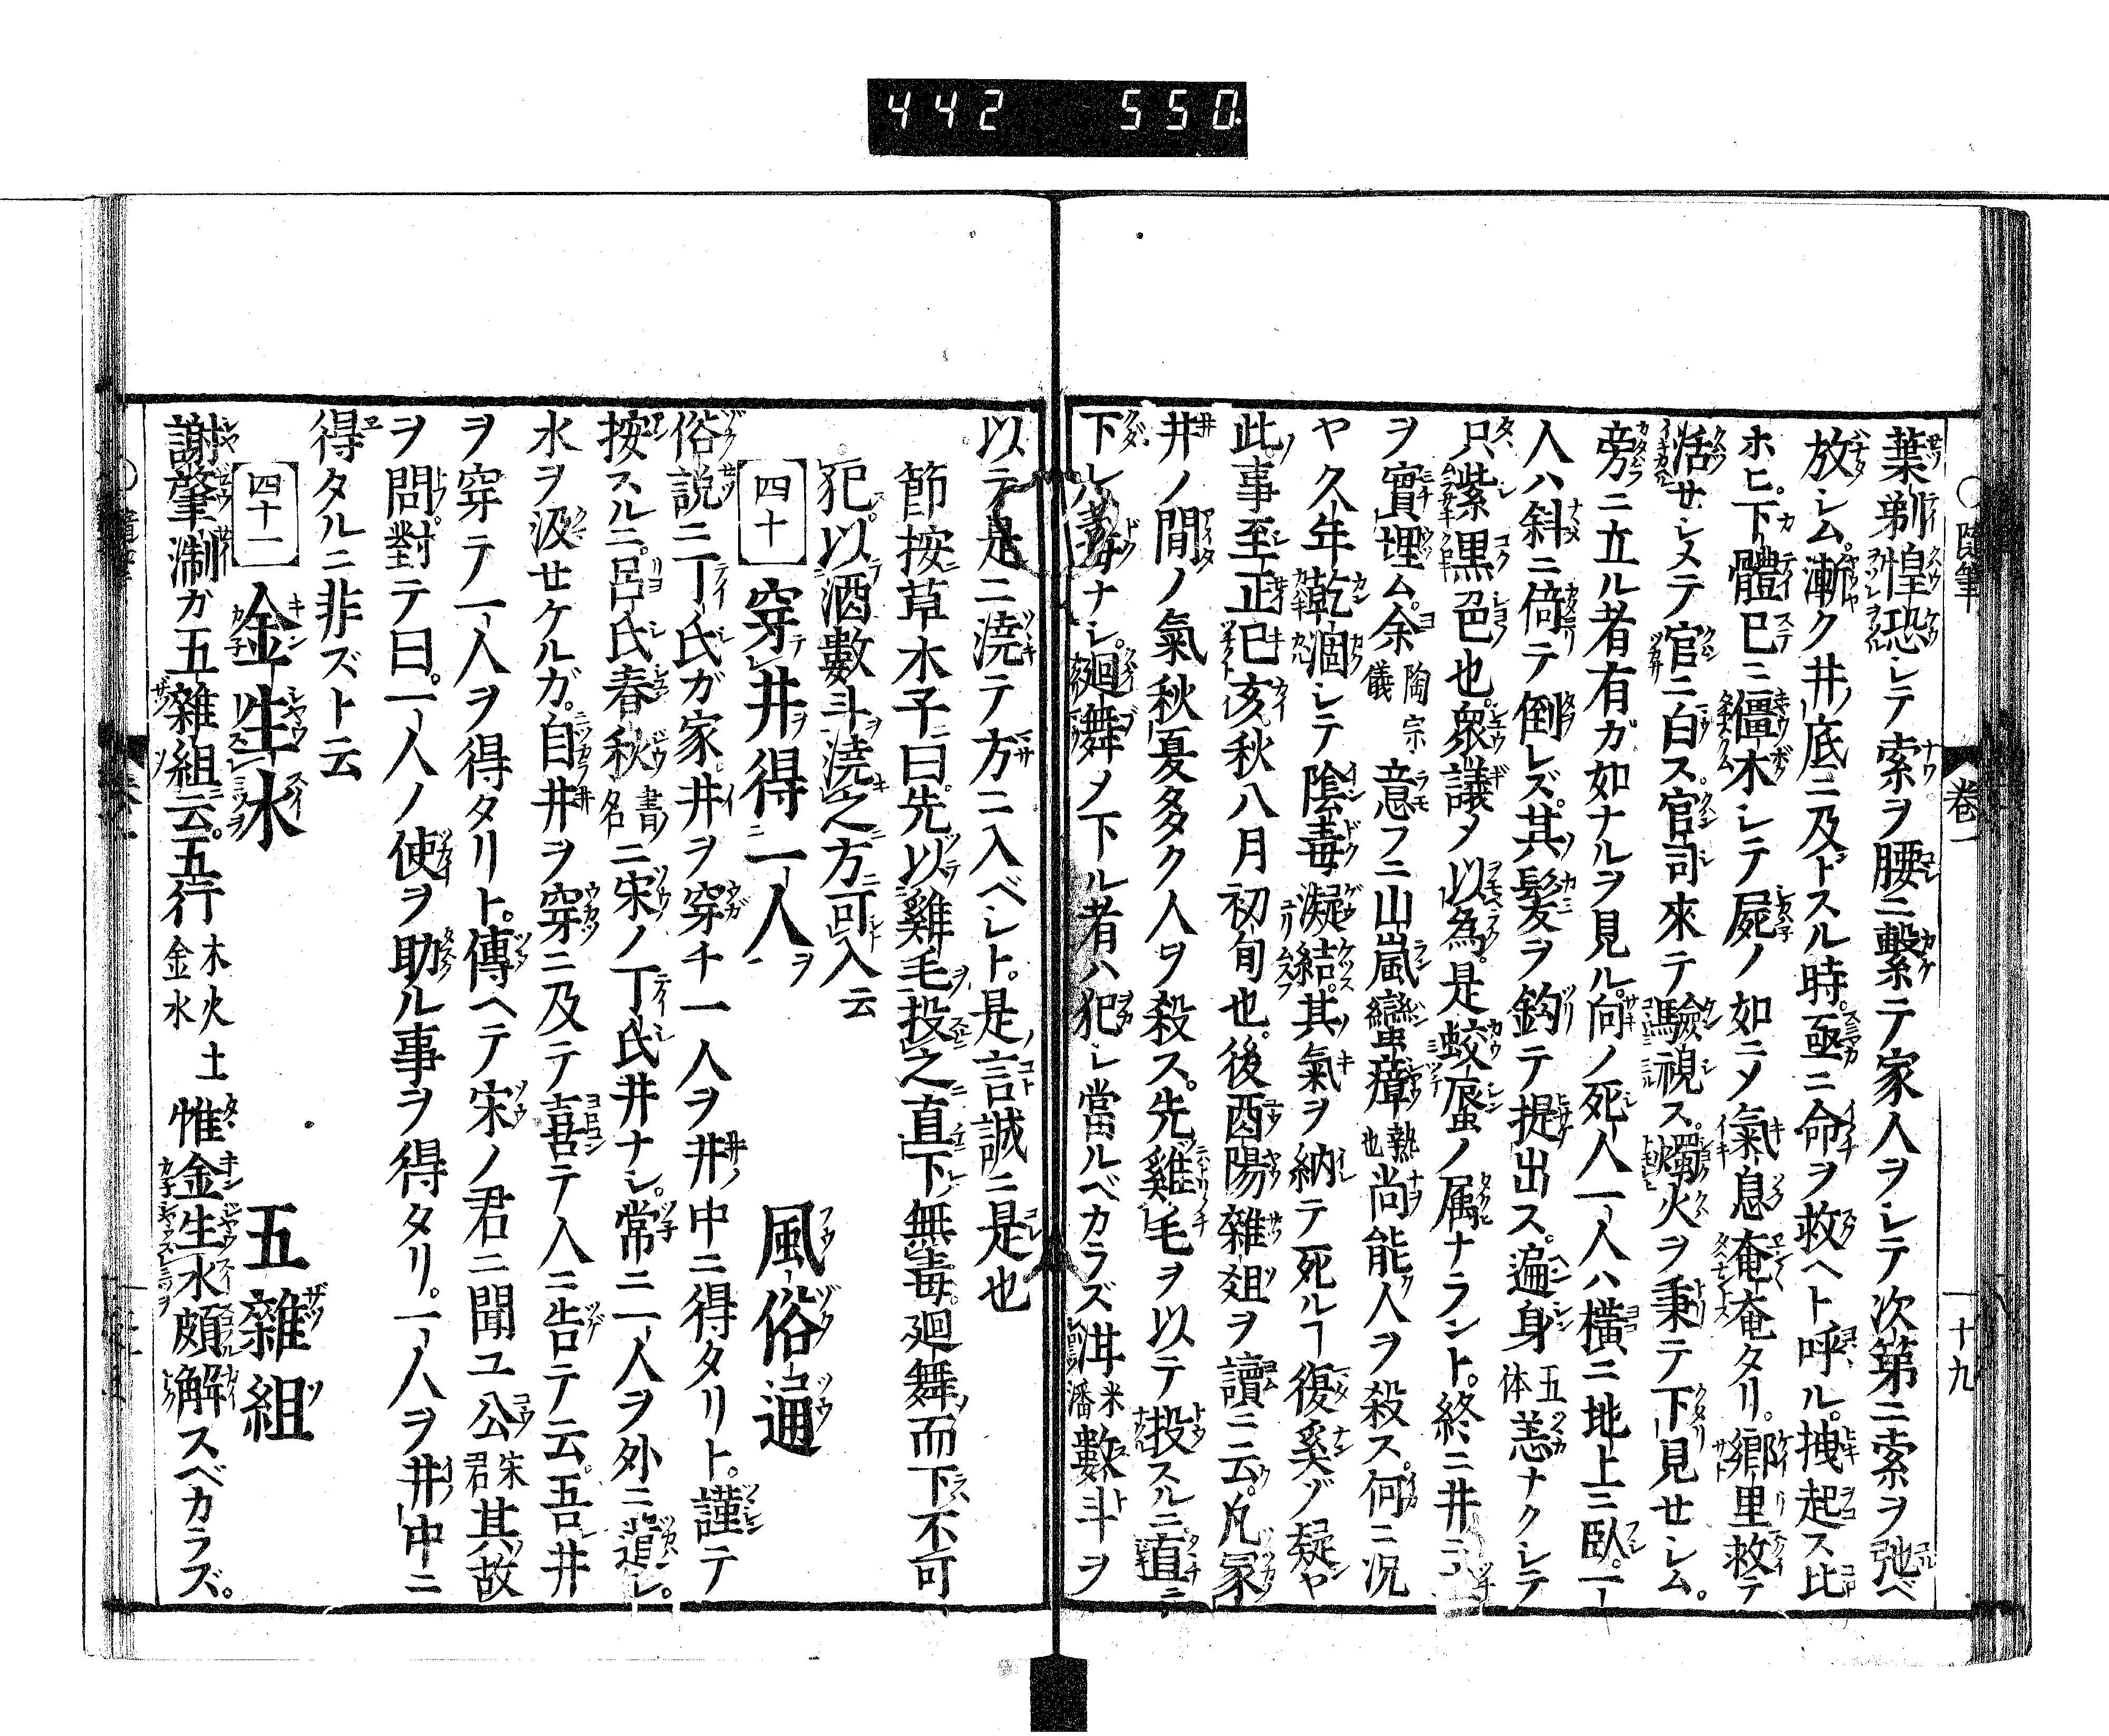 442 550
○隨筆 卷一 十九
葉剃惶恐シテ索ヲ腰ニ繫テ家人ヲシテ次第ニ索ヲ弛ベ
放シム漸ク井底ニ及ドスル時亟ニ命ヲ救ヘト呼ル拽起ス比
ホヒ下體已ニ僵木シテ屍ノ如ニメ氣息奄奄タリ鄕里救テ
活セシメテ官ニ白ス官司來テ驗視ス燭火ヲ秉テ下見セシム
旁ニ立ル者有ガ如ナルヲ見ル向ノ死人一人ハ橫ニ地上ニ臥一
人ハ斜ニ倚テ倒レズ其髮ヲ鈎テ提出ス遍身五体恙ナクシテ
只紫黑色也衆議メ以為是蛟蜃ノ属ナラント終ニ井
ヲ實埋ム余陶宗儀意フニ山嵐蠻瘴熱也尚能人ヲ殺ス何ニ況
ヤ久年乾涸シテ陰毒凝結其氣ヲ納テ死ルヿ復奚ゾ疑ヤ
此事至正己亥秋八月初旬也後酉陽雜俎ヲ讀ニ云凡冢
井ノ間ノ氣秋夏多ク人ヲ殺ス先雞毛ヲ以テ投スルニ直ニ
下レハ毒ナシ廻舞メ下ル者ハ犯シ當ルベカラズ泔米潘數斗ヲ
以テ是ニ澆テ方ニ入ベシト是言誠ニ是也
節按草木子曰先以雞毛投之直下無毒廻舞而下不可
犯以酒數斗澆之方可入云
四十 穿井得一人 風俗通
俗說ニ丁氏ガ家井ヲ穿チ一人ヲ井中ニ得タリト謹テ
按スルニ呂氏春秋書名ニ宋ノ丁氏井ナシ常ニ一人ヲ外ニ
水ヲ汲セケルガ自井ヲ穿ニ及テ喜テ人ニ告テ云吾井
ヲ穿テ一人ヲ得タリト傳ヘテ宋ノ君ニ聞ユ公宋君其故
ヲ問對テ曰一人ノ使ヲ助ル事ヲ得タリ一人ヲ井中ニ
得タルニ非ズト云
四十一 金生水 五雜組
謝肇淛ガ五雜組云五行木火土金水惟金生水頗解スベカラズ